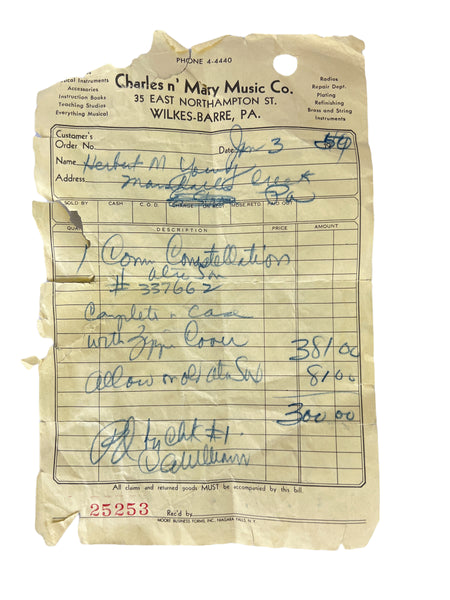 PHONE 4-4440
Musical Instruments
Accessories
Instruction Books
Teaching Studios
Everything Musical
Charles n' Mary Music Co.
35 EAST NORTHAMPTON ST.
WILKES-BARRE, PA.
Radios
Repair Dept.
Plating
Refinishing
Brass and String
Instruments
Customer's
Order No.
Date Jan 3
Name Herbert M. Young
Address Marshalls Creek
Pa
SOLD BY CASH C.O.D. CHARGE ON ACCT. MDSE. RETD. PAID OUT
QUAN. DESCRIPTION PRICE AMOUNT
1 Conn Constellation
alto Sax
# 337662
Complete in Case
with Zipper Cover 381 00
Allow on old alto Sax 81 00
300 00
Pd by Chk #1
All claims and returned goods MUST be accompanied by this bill.
25253 Rec'd by
MOORE BUSINESS FORMS, INC. NIAGARA FALLS, N. Y.